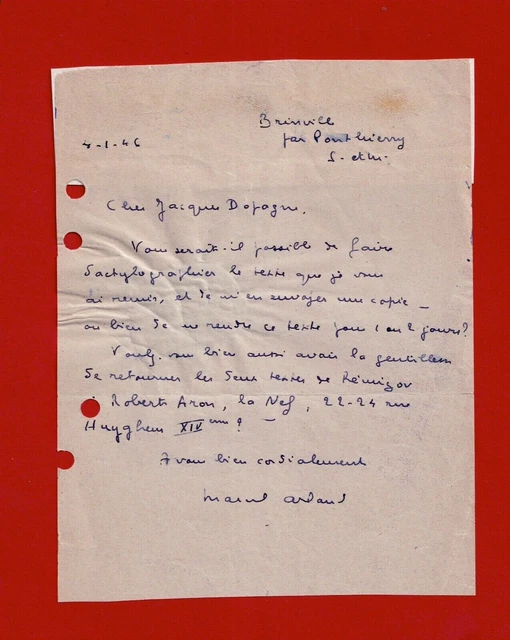 Brinville
par Ponthierry
4-1-46
S. et M.
Cher Jacques Dopagne,
Vous serait-il possible de faire
dactylographier le texte que je vous
ai remis, et de m'en envoyer une copie –
ou bien de me rendre ce texte pour 1 ou 2 jours?
Voulez-vous bien aussi avoir la gentillesse
de retourner les deux textes de Rémizov
à Robert Aron, la Nef, 22-24 rue
Huyghens XIVème? –
A vous bien cordialement
Marcel Arland